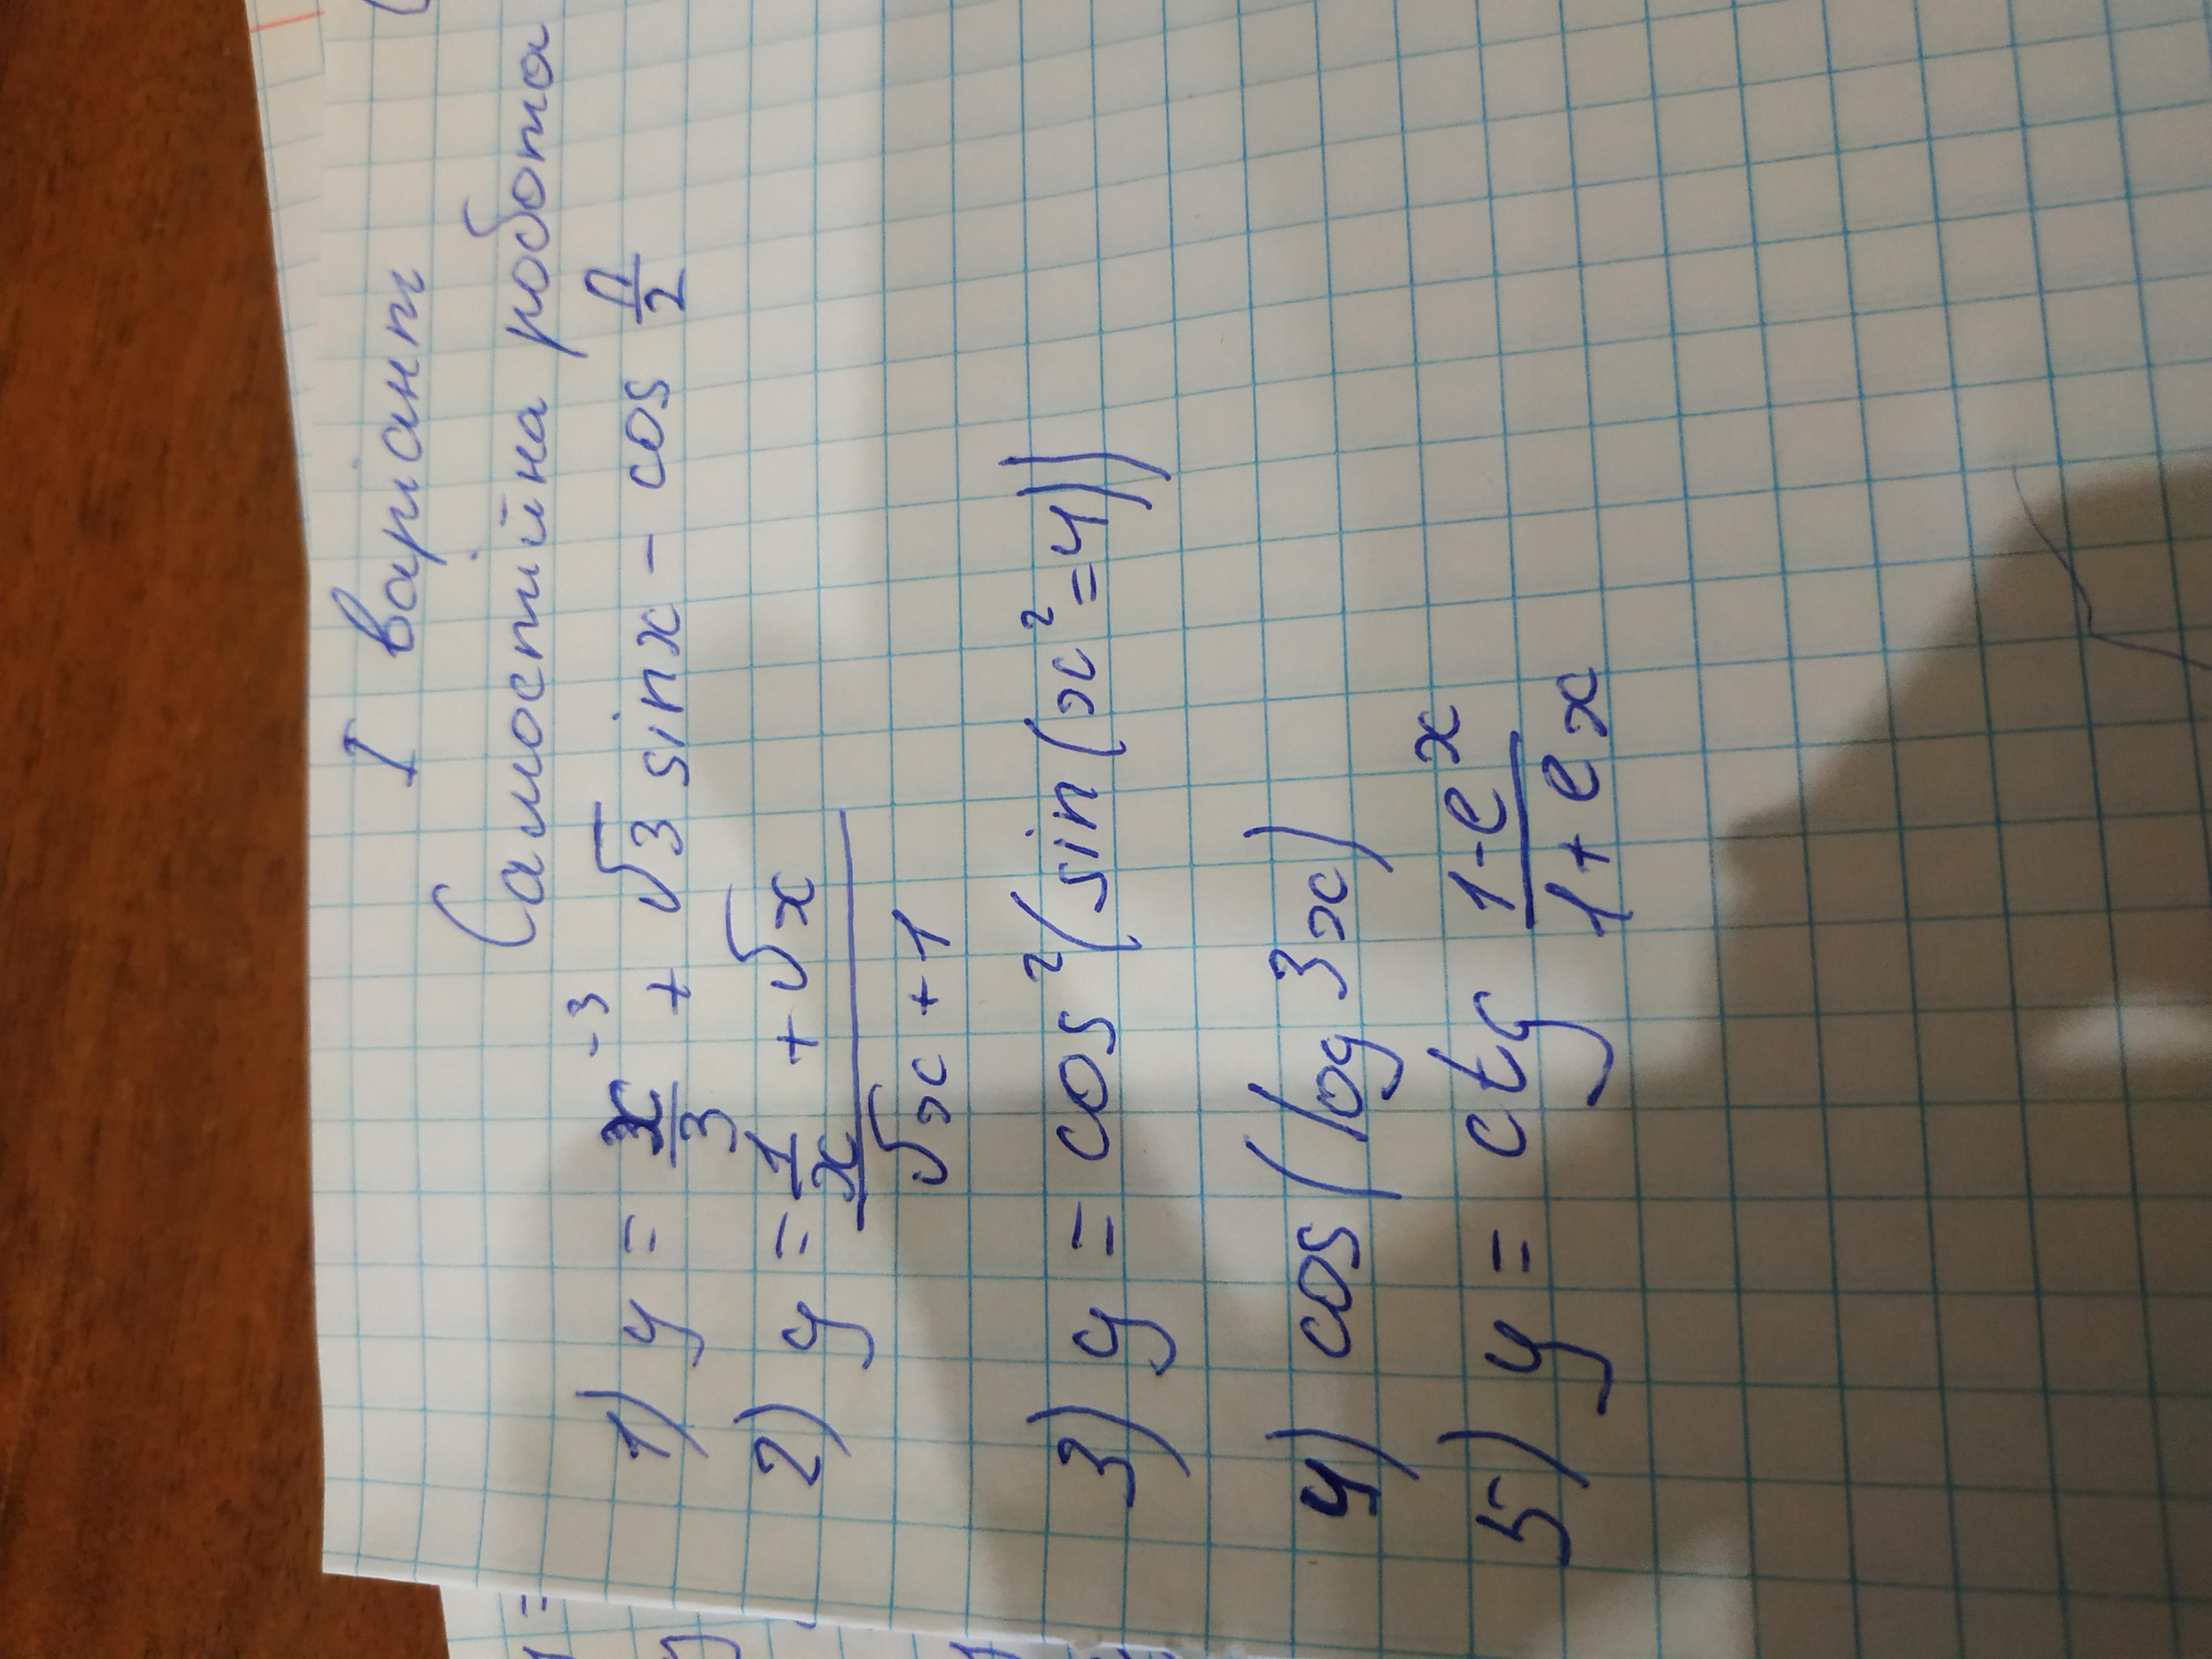 I варіант
Самостійна робота
1) y = x⁻³/3 + √3 sinx - cos π/2
2) y = (1/x + √x)/(√x + 1)
3) y = cos²(sin(x²=4))
4) cos(log3x)
5) y = ctg (1-eˣ)/(1+eˣ)